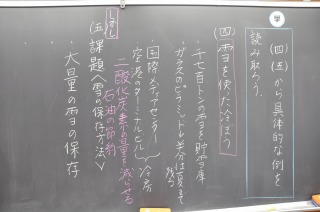 学
(四)(五)から具体的な例を
読み取ろう。
(四)雪を使った冷ぼう
・千七百トンの雪を貯雪庫
・ガラスのピラミッド→半分は夏まで
残る
・国際メディアセンター
空港のターミナルビル
冷房
二酸化炭素の量を減らせる
石油の節約
しかし
(五)課題〈雪の保存方法〉
・大量の雪の保存